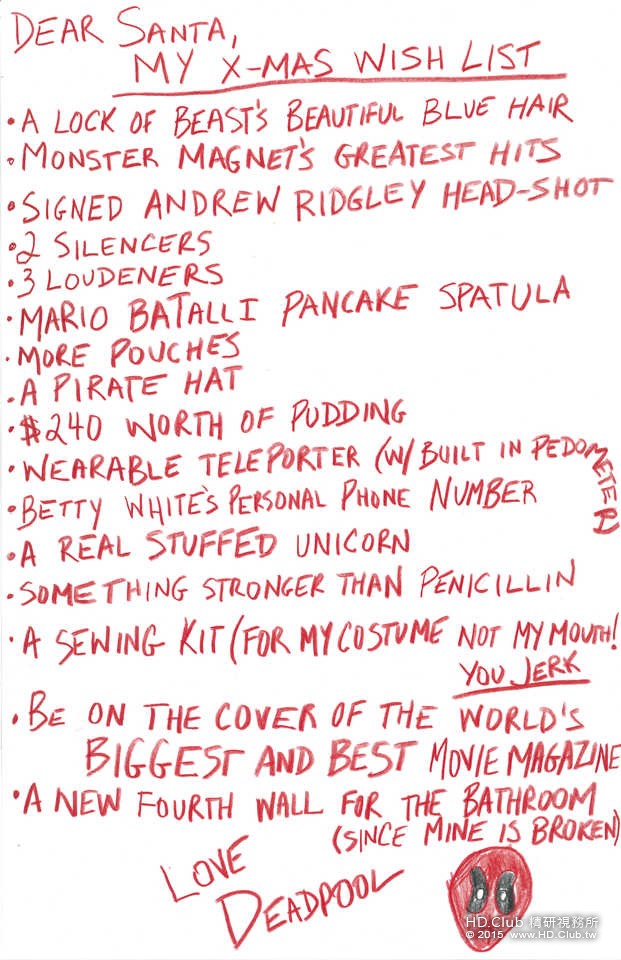 DEAR SANTA,
MY X-MAS WISH LIST
• A LOCK OF BEAST'S BEAUTIFUL BLUE HAIR
• MONSTER MAGNET'S GREATEST HITS
• SIGNED ANDREW RIDGLEY HEAD-SHOT
• 2 SILENCERS
• 3 LOUDENERS
• MARIO BATALLI PANCAKE SPATULA
• MORE POUCHES
• A PIRATE HAT
• $240 WORTH OF PUDDING
• WEARABLE TELEPORTER (W/ BUILT IN PEDOMETER)
• BETTY WHITE'S PERSONAL PHONE NUMBER
• A REAL STUFFED UNICORN
• SOMETHING STRONGER THAN PENICILLIN
• A SEWING KIT (FOR MY COSTUME NOT MY MOUTH!
YOU JERK
• BE ON THE COVER OF THE WORLD'S
BIGGEST AND BEST MOVIE MAGAZINE
• A NEW FOURTH WALL FOR THE BATHROOM
(SINCE MINE IS BROKEN)
LOVE
DEADPOOL
HD.Club 精研視務所
© 2015 www.HD.Club.tw